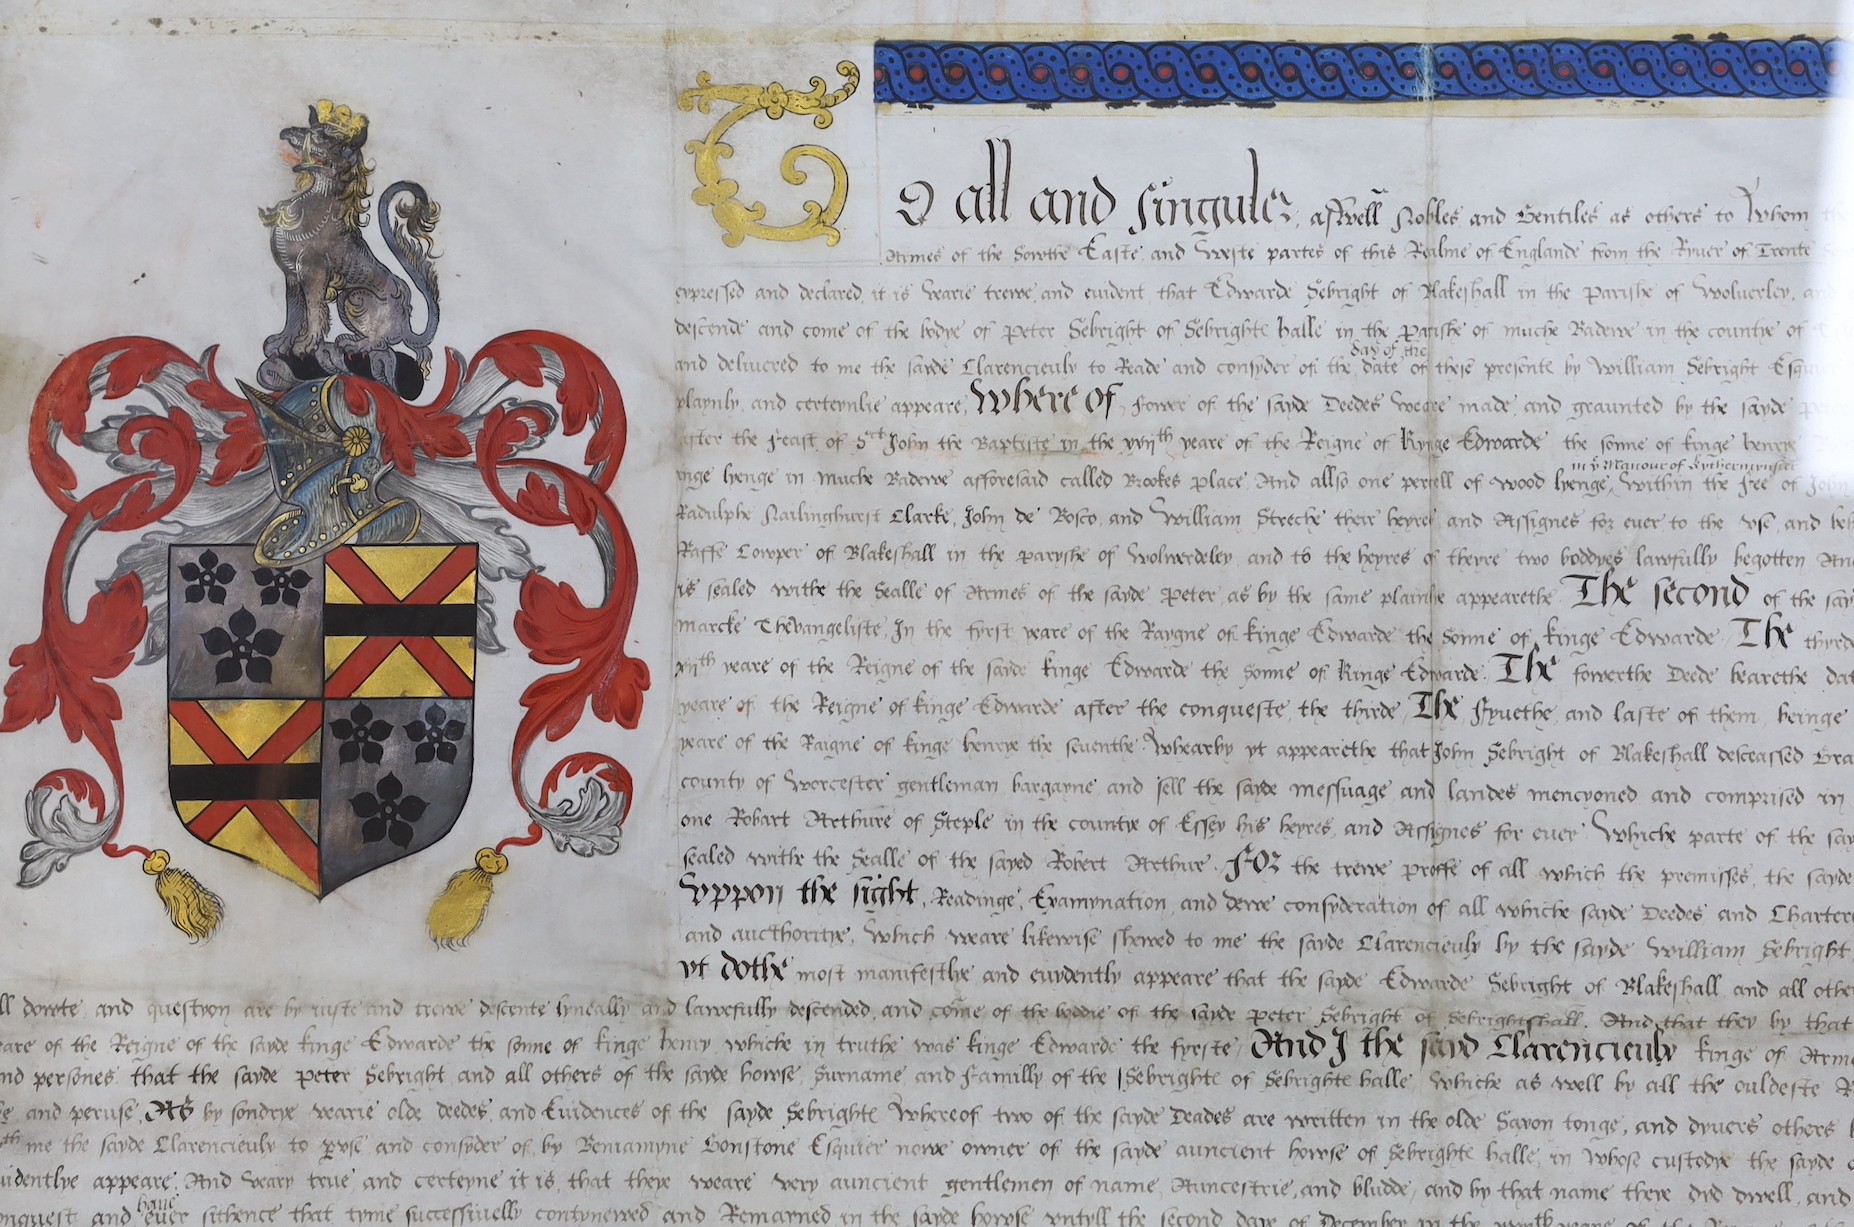 TO all and singuler, aswell Nobles and Gentiles as others to Whom the
Armes of the Sowthe Easte and Weste partes of this Realme of Englande from the Ryuer of Trente
expressed and declared, it is wearie trewe, and euident that Edwarde Sebright of Blakeshall in the Parishe of Woluerley, and
descende and come of the bodye of Peter Sebright of Sebrighte halle in the Parishe of muche Badewe in the countye of
day of the
and deliuered to me the sayde Clarencieulx to Reade and consyder of the date of these presente by William Sebright Esquier
playnly and certeynlie appeare, Where of, Fower of the sayde Deedes weare made and graunted by the sayde
after the Feast of Sct John the Baptiste in the xviith yeare of the Reigne of Kynge Edwarde the sonne of kinge henrye
in ye Manour of Kydermynster
lyenge in muche Badewe afforesaid called Brookes place And allso one percell of wood lyenge within the Fee of John
Radulphe Nailinghurst Clarke, John de Bosco, and William Streche their heyres and Assignes for euer to the vse, and beh
Raffe Cowper of Blakeshall in the paryshe of Wolwerdeley, and to the heyres of theyre two boddyes lawfully begotten And
is sealed withe the Sealle of Armes of the sayde Peter, as by the same plainlie appearethe The second of the say
marcke Thevangeliste, In the fyrst yeare of the Raygne of kinge Edwarde the Sonne of kinge Edwarde. The thyrde
yeare of the Reigne of the sayde kinge Edwarde the sonne of Kinge Edwarde. The fowerthe Deede bearethe dat
yeare of the Reigne of kinge Edwarde after the conqueste the thirde, The Fyuethe, and laste of them, beinge
yeare of the Raigne of kinge henrye the seuenthe. Whearby yt appearethe that John Sebright of Blakeshall desceassed Gra
county of Worcester gentleman bargayne and sell the sayde messuage and landes mencyoned and comprised in
one Robart Arthure of Steple in the countye of Essex his heyres, and Assignes for euer Whiche parte of the say
sealed withe the Sealle of the sayed Robert Arthur. For the trewe proffe of all which the premisses, the sayde
Vppon the sight, Readinge, Examynation, and dewe consyderation of all whiche sayde Deedes and Charter
and aucthoritye, Which weare likewise shewed to me the sayde Clarencieulx by the sayde William Sebright,
yt dothe most manifestlye and euydently appeare that the sayde Edwarde Sebright of Blakeshall and all othe
ll dowte, and questyon are by iuste and trewe descente lyneally and lawefully descended, and come of the boddie of the sayde Peter Sebright of Sebrightshall. And that they by that
eare of the Reigne of the sayde kinge Edwarde the sonne of kinge henry, whiche in truthe was kinge Edwarde the fyrste, And I the sayd Clarencieulx kinge of Arme
nd persones that the sayde Peter Sebright and all others of the sayde howse, Surname and Familly of the Sebrighte of Sebrighte halle, Whiche as well by all the ouldeste
and peruse, As by sondrye wearie olde deedes, and Euidences of the sayde Sebrighte Whereof two of the sayde Deades are written in the olde Saxon tonge, and dyuers others
me the sayde Clarencieulx to pvse and consyder of, by Beniamyne Gonstone Esquier nowe owner of the sayde auncient howse of Sebrighte halle, in Whose custodye the sayde
uidentlye appeare. And weary true and certeyne it is, that theye weare very auncient gentlemen of name, Auncestrie, and bludde, and by that name there dyd dwell, and
haue
onquest and euer sithence that tyme successiuelly contynewed and Remained in the sayde howse vntyll the second daye of December in the yeare of the